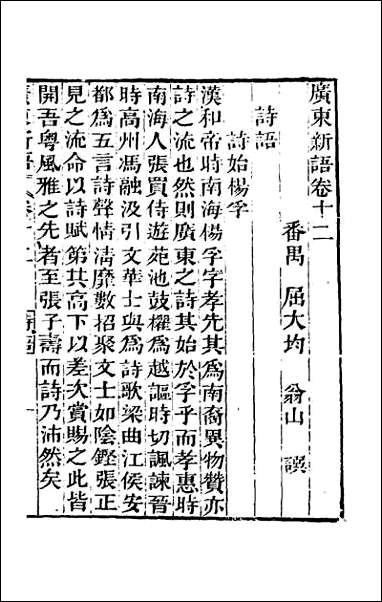 廣東新語卷十二
番禺 屈大均 翁山 譔
詩語
詩始楊孚
漢和帝時南海楊孚字孝先其爲南裔異物贊亦
詩之流也然則廣東之詩其始於孚乎而孝惠時
南海人張買侍遊苑池鼓櫂爲越謳時切諷諫晉
時高州馮融汲引文華士與爲詩歌梁曲江侯安
都爲五言詩聲情清靡數招聚文士如陰鏗張正
見之流命以詩賦第其高下以差次賞賜之此皆
開吾粵風雅之先者至張子壽而詩乃沛然矣